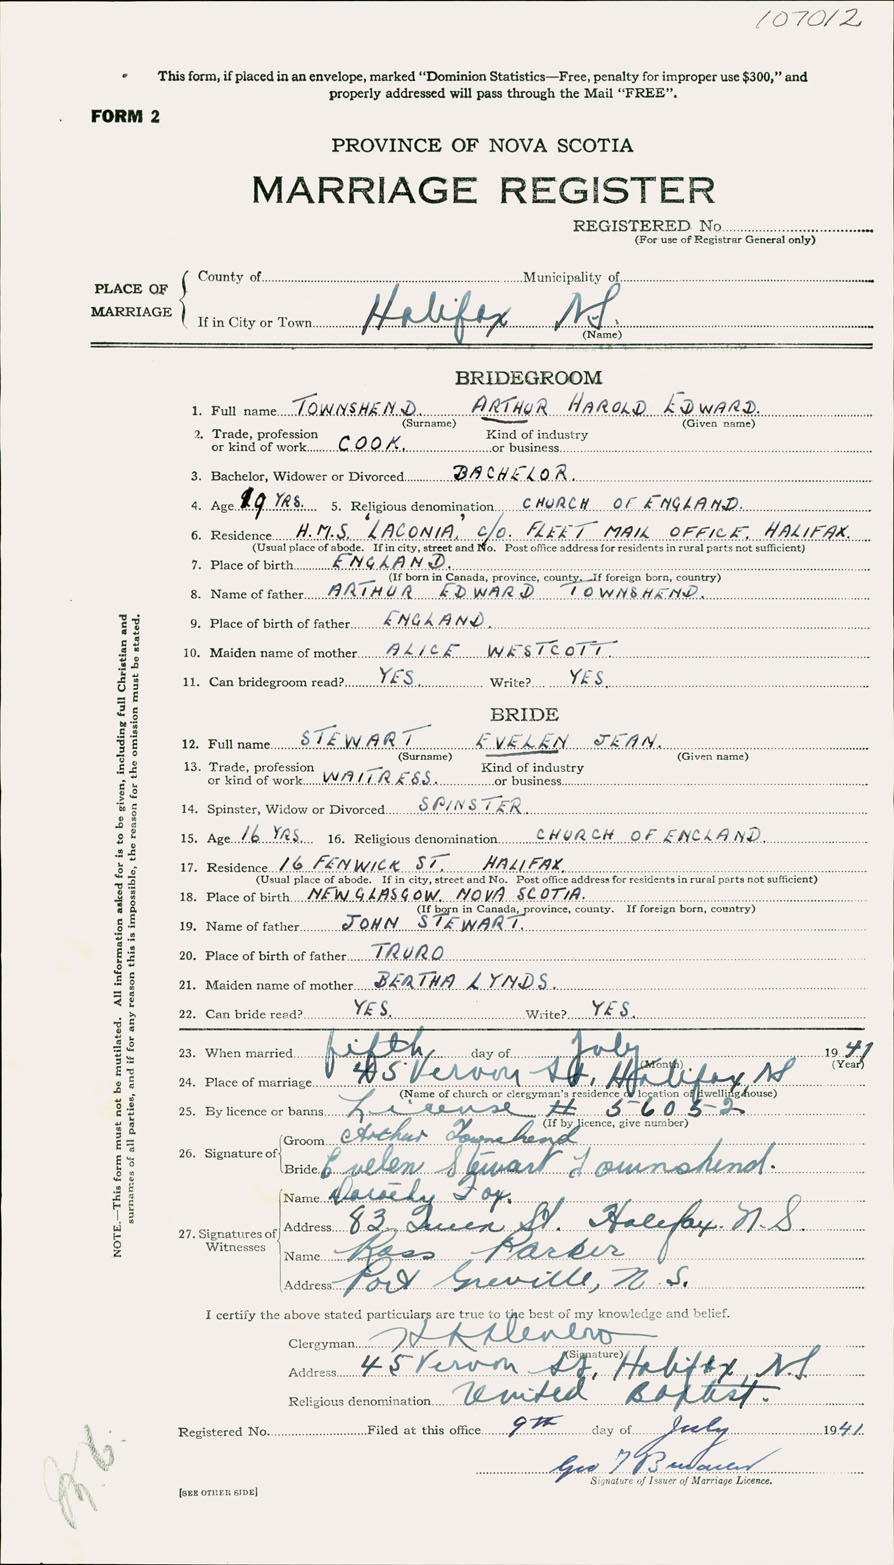 107012
This form, if placed in an envelope, marked “Dominion Statistics—Free, penalty for improper use $300,” and
properly addressed will pass through the Mail “FREE”.
FORM 2
PROVINCE OF NOVA SCOTIA
MARRIAGE REGISTER
REGISTERED No.
(For use of Registrar General only)
PLACE OF MARRIAGE
County of Municipality of
If in City or Town Halifax N.S.
(Name)
BRIDEGROOM
1. Full name TOWNSHEND. ARTHUR HAROLD EDWARD.
(Surname) (Given name)
2. Trade, profession Kind of industry
or kind of work COOK. or business
3. Bachelor, Widower or Divorced BACHELOR.
4. Age 19 YRS. 5. Religious denomination CHURCH OF ENGLAND.
6. Residence H.M.S. 'LACONIA,' c/o. FLEET MAIL OFFICE, HALIFAX.
(Usual place of abode. If in city, street and No. Post office address for residents in rural parts not sufficient)
7. Place of birth ENGLAND.
(If born in Canada, province, county. If foreign born, country)
8. Name of father ARTHUR EDWARD TOWNSHEND.
9. Place of birth of father ENGLAND.
10. Maiden name of mother ALICE WESTCOTT.
11. Can bridegroom read? YES. Write? YES.
BRIDE
12. Full name STEWART EVELEN JEAN.
(Surname) (Given name)
13. Trade, profession Kind of industry
or kind of work WAITRESS. or business
14. Spinster, Widow or Divorced SPINSTER.
15. Age 16 YRS. 16. Religious denomination CHURCH OF ENGLAND.
17. Residence 16 FENWICK ST. HALIFAX.
(Usual place of abode. If in city, street and No. Post office address for residents in rural parts not sufficient)
18. Place of birth NEW GLASGOW. NOVA SCOTIA.
(If born in Canada, province, county. If foreign born, country)
19. Name of father JOHN STEWART.
20. Place of birth of father TRURO
21. Maiden name of mother BERTHA LYNDS.
22. Can bride read? YES. Write? YES.
23. When married fifth day of July 1941
(Month) (Year)
24. Place of marriage 45 Vernon St, Halifax, N.S
(Name of church or clergyman's residence or location of dwelling house)
25. By licence or banns License # 56052
(If by licence, give number)
26. Signature of
Groom Arthur Townshend
Bride Evelen Stewart Townshend.
27. Signatures of Witnesses
Name Dorothy Fox.
Address 83 Queen St. Halifax. N.S.
Name Ross Parker
Address Port Greville, N.S.
I certify the above stated particulars are true to the best of my knowledge and belief.
Clergyman
(Signature)
Address 45 Vernon St, Halifax, N.S
Religious denomination United Baptist.
Registered No. Filed at this office 9th day of July 1941.
Geo
Signature of Issuer of Marriage Licence.
[SEE OTHER SIDE]
NOTE.—This form must not be mutilated. All information asked for is to be given, including full Christian and
surnames of all parties, and if for any reason this is impossible, the reason for the omission must be stated.